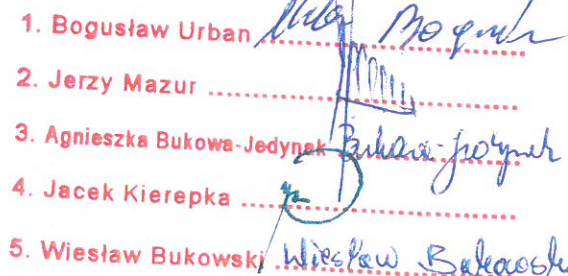 1. Bogusław Urban Urban Bogusł
2. Jerzy Mazur
3. Agnieszka Bukowa-Jedynak Bukowa-Jedynak
4. Jacek Kierepka
5. Wiesław Bukowski Wiesław Bukowski